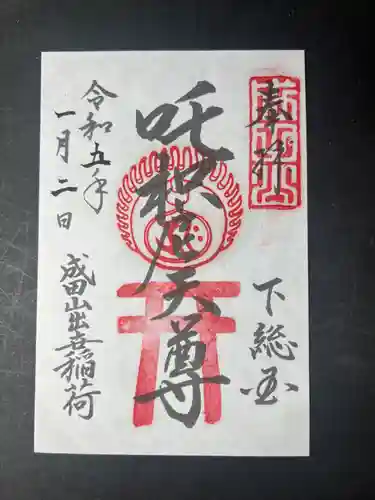 奉拝
下総国
吒枳尼天尊
令和五年
一月二日
成田山出世稲荷